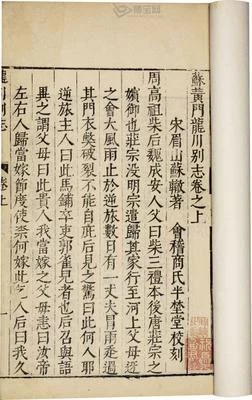 蘇黃門龍川别志卷之上
宋眉山蘇轍著　會稽商氏半埜堂校刻
周高祖柴后魏成安人父曰柴三禮本後唐莊宗之
嬪御也莊宗没明宗遣歸其家行至河上父母迓
之會大風雨止於逆旅數日有一丈夫冒雨走過
其門衣獘破裂不能自庇后見之驚曰此何人耶
逆旅主人曰此馬鋪卒吏郭雀兒者也后召與語
異之謂父母曰此貴人我當嫁之父母恚曰汝帝
左右人歸當嫁節度使柰何嫁此乞人后曰我久
龍川别志　卷上